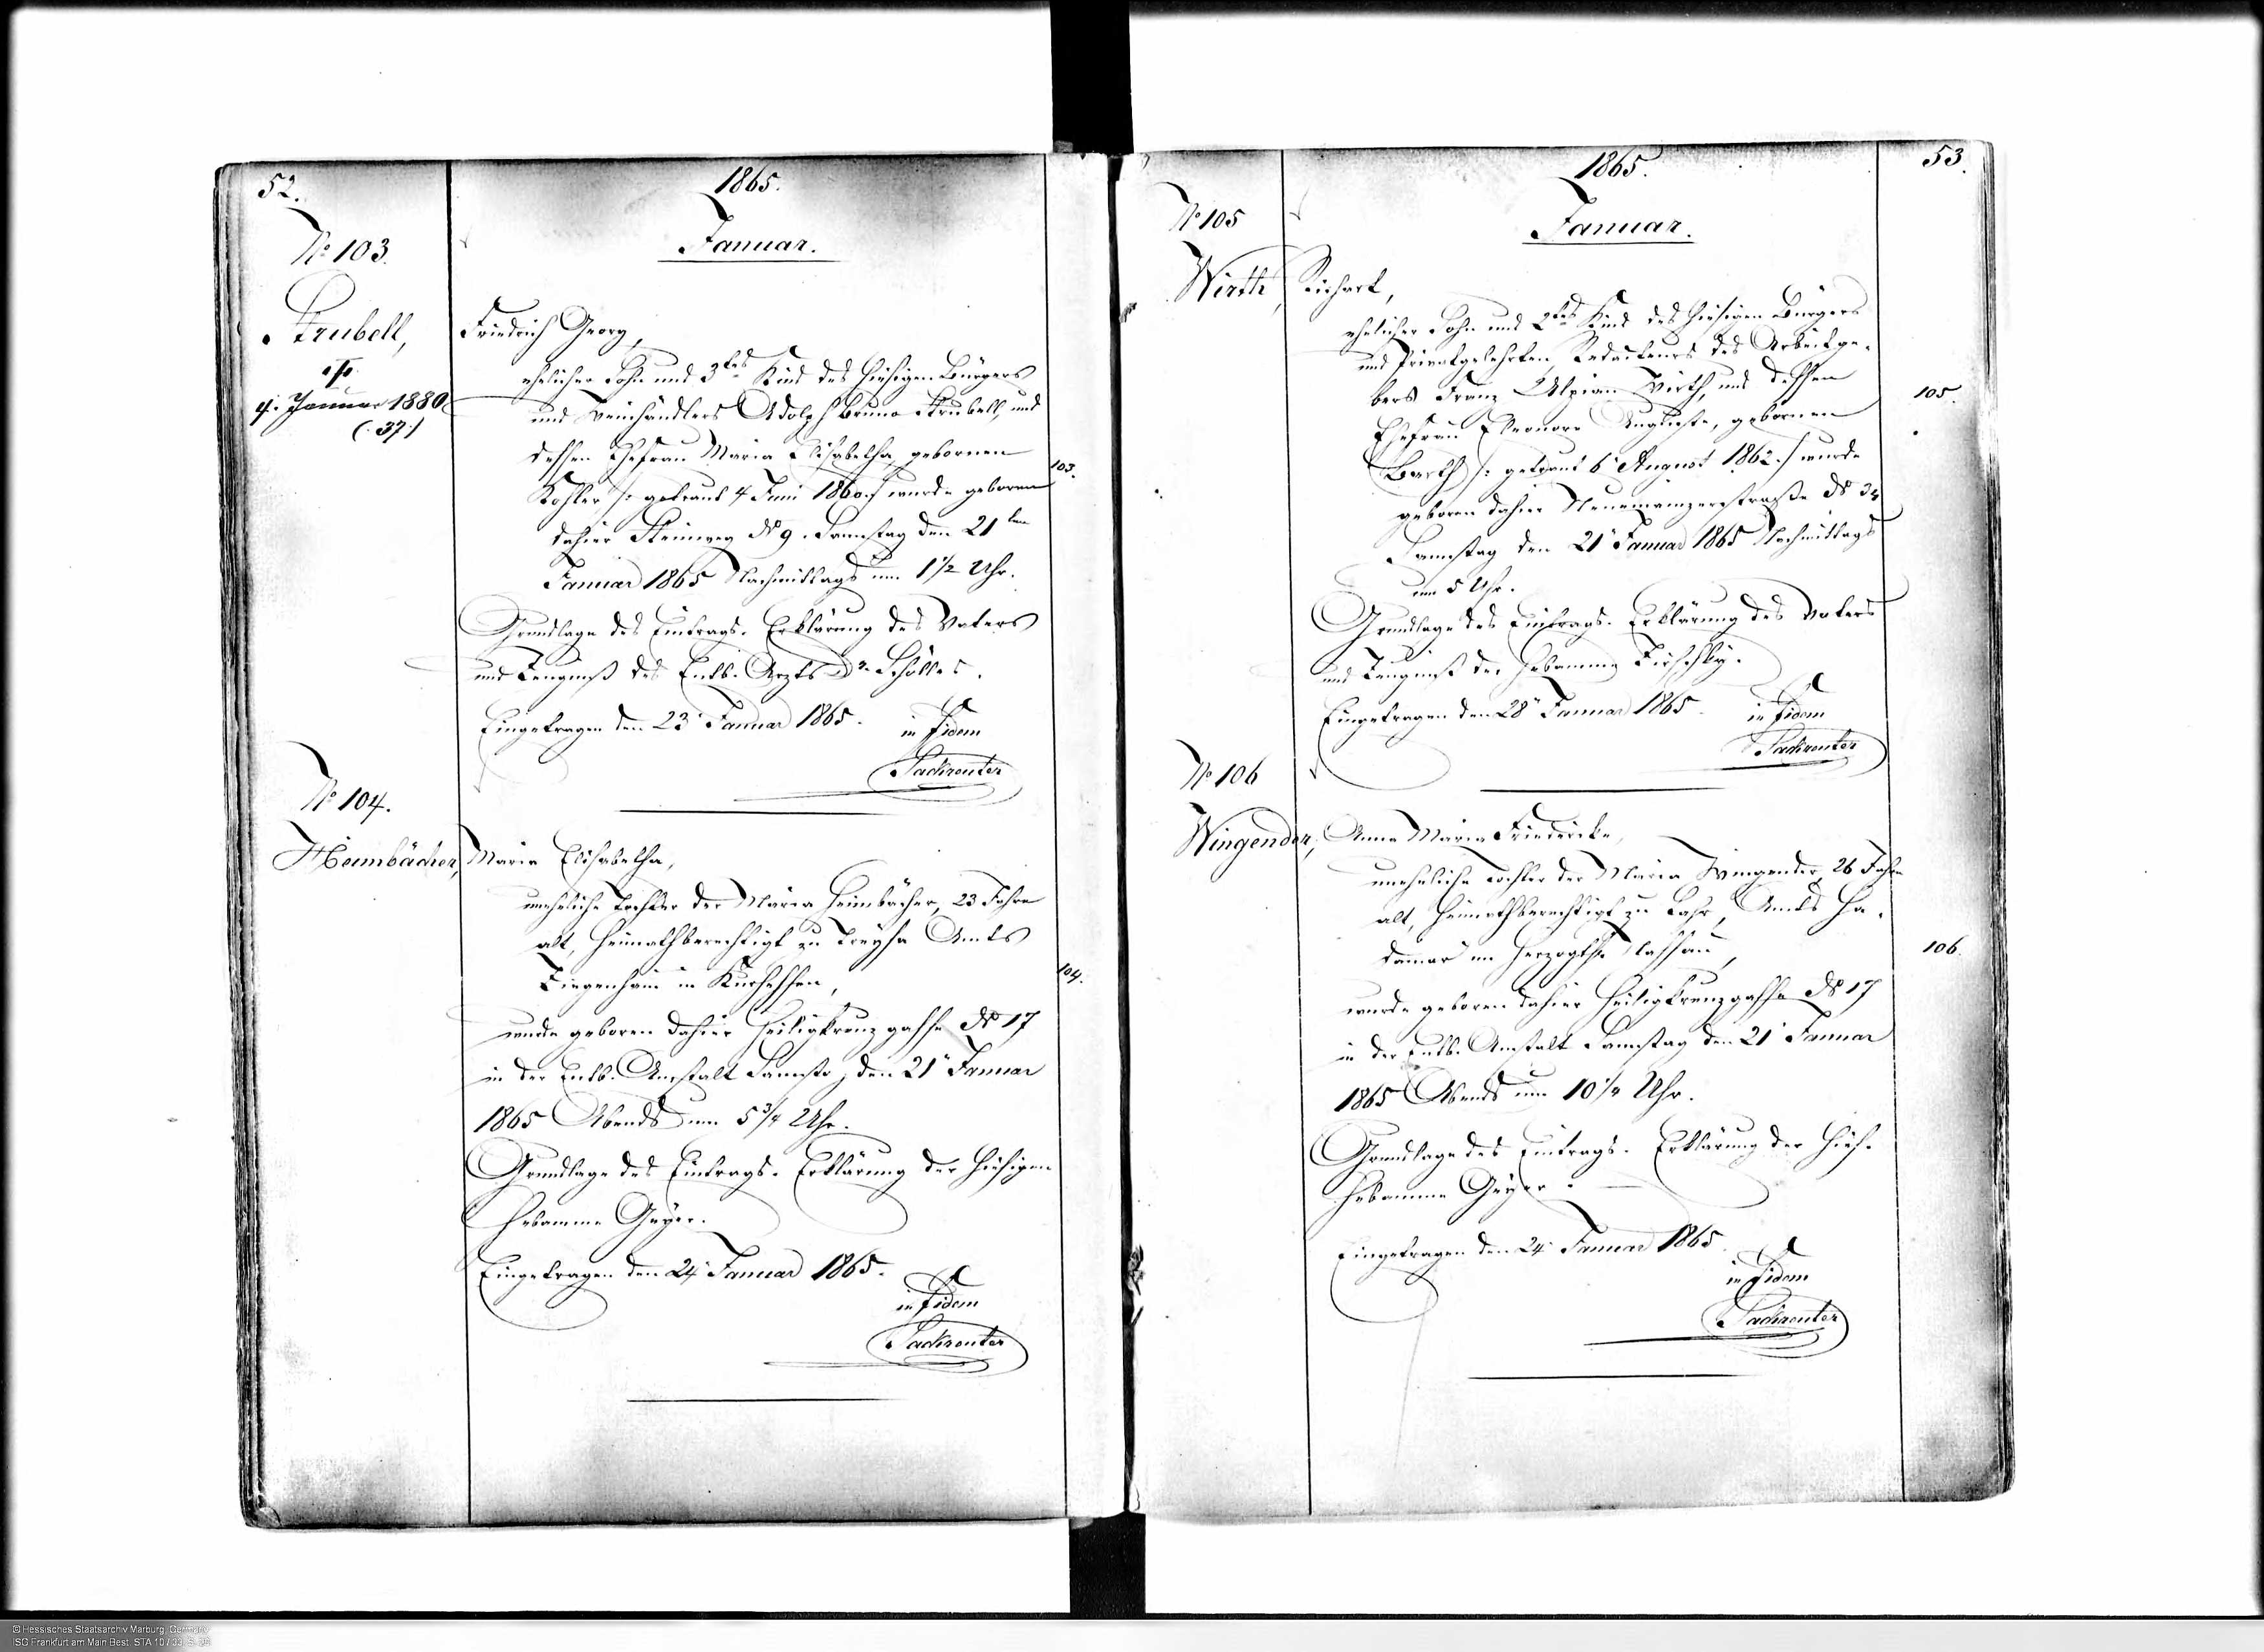 52.
1865.
Januar.
№ 103.
Strubell,
†
4. Januar 1880
(. 37.)
Friedrich Georg,
ehelicher Sohn und 3tes Kind des hiesigen Bürgers
und Weinhändlers Adolph Bruno Strubell, und
dessen Ehefrau Maria Elisabetha, gebornen
Kohler /: getraut 4 Juni 1860 :/ wurde geboren
dahier Steinweg № 9. Samstag den 21ten
Januar 1865 Nachmittags um 1½ Uhr.
Grundlage des Eintrags. Erklärung des Vaters
und Zeugniß des Entb. Arzts Dr. Schölles.
Eingetragen den 23 Januar 1865.
in fidem
Sackreuter
103.
№ 104.
Heimbächer,
Maria Elisabetha,
uneheliche Tochter der Maria Heimbächer, 23 Jahre
alt, heimathberechtigt zu Treysa Amts
Ziegenhain in Kurhessen,
wurde geboren dahier Heiligkreuzgasse № 17
in der Entb. Anstalt Samstag den 21 Januar
1865 Abends um 5¾ Uhr.
Grundlage des Eintrags. Erklärung der hiesigen
Hebamme Geyer.
Eingetragen den 24 Januar 1865.
in fidem
Sackreuter
104.
1865.
53.
Januar.
№ 105
Wirth,
Richard,
ehelicher Sohn und 2tes Kind des hiesigen Bürgers
und Privatgelehrten, Redacteurs des Arbeitge-
bers Franz Ulpian Wirth, und dessen
Ehefrau Eleonore Auguste, gebornen
Barth /: getraut 6 August 1862 :/ wurde
geboren dahier Neuemainzerstraße №
Samstag den 21 Januar 1865 Nachmittags
um 5 Uhr.
Grundlage des Eintrags. Erklärung des Vaters
und Zeugniß der Hebamme
Eingetragen den 28 Januar 1865.
in fidem
Sackreuter
105.
№ 106
Wingender,
Anna Maria Friedericke,
uneheliche Tochter der Maria Wingender, 26 Jahre
alt, heimathberechtigt zu Lahr, Amts Ha-
damar im Herzogth. Nassau,
wurde geboren dahier Heiligkreuzgasse № 17
in der Entb. Anstalt Samstag den 21 Januar
1865 Abends um 10¼ Uhr.
Grundlage des Eintrags. Erklärung der hies.
Hebamme Geyer.
Eingetragen den 24 Januar 1865.
in fidem
Sackreuter
106.
© Hessisches Staatsarchiv Marburg, Germany
ISG Frankfurt am Main Best. STA 10 / 33, S. 35